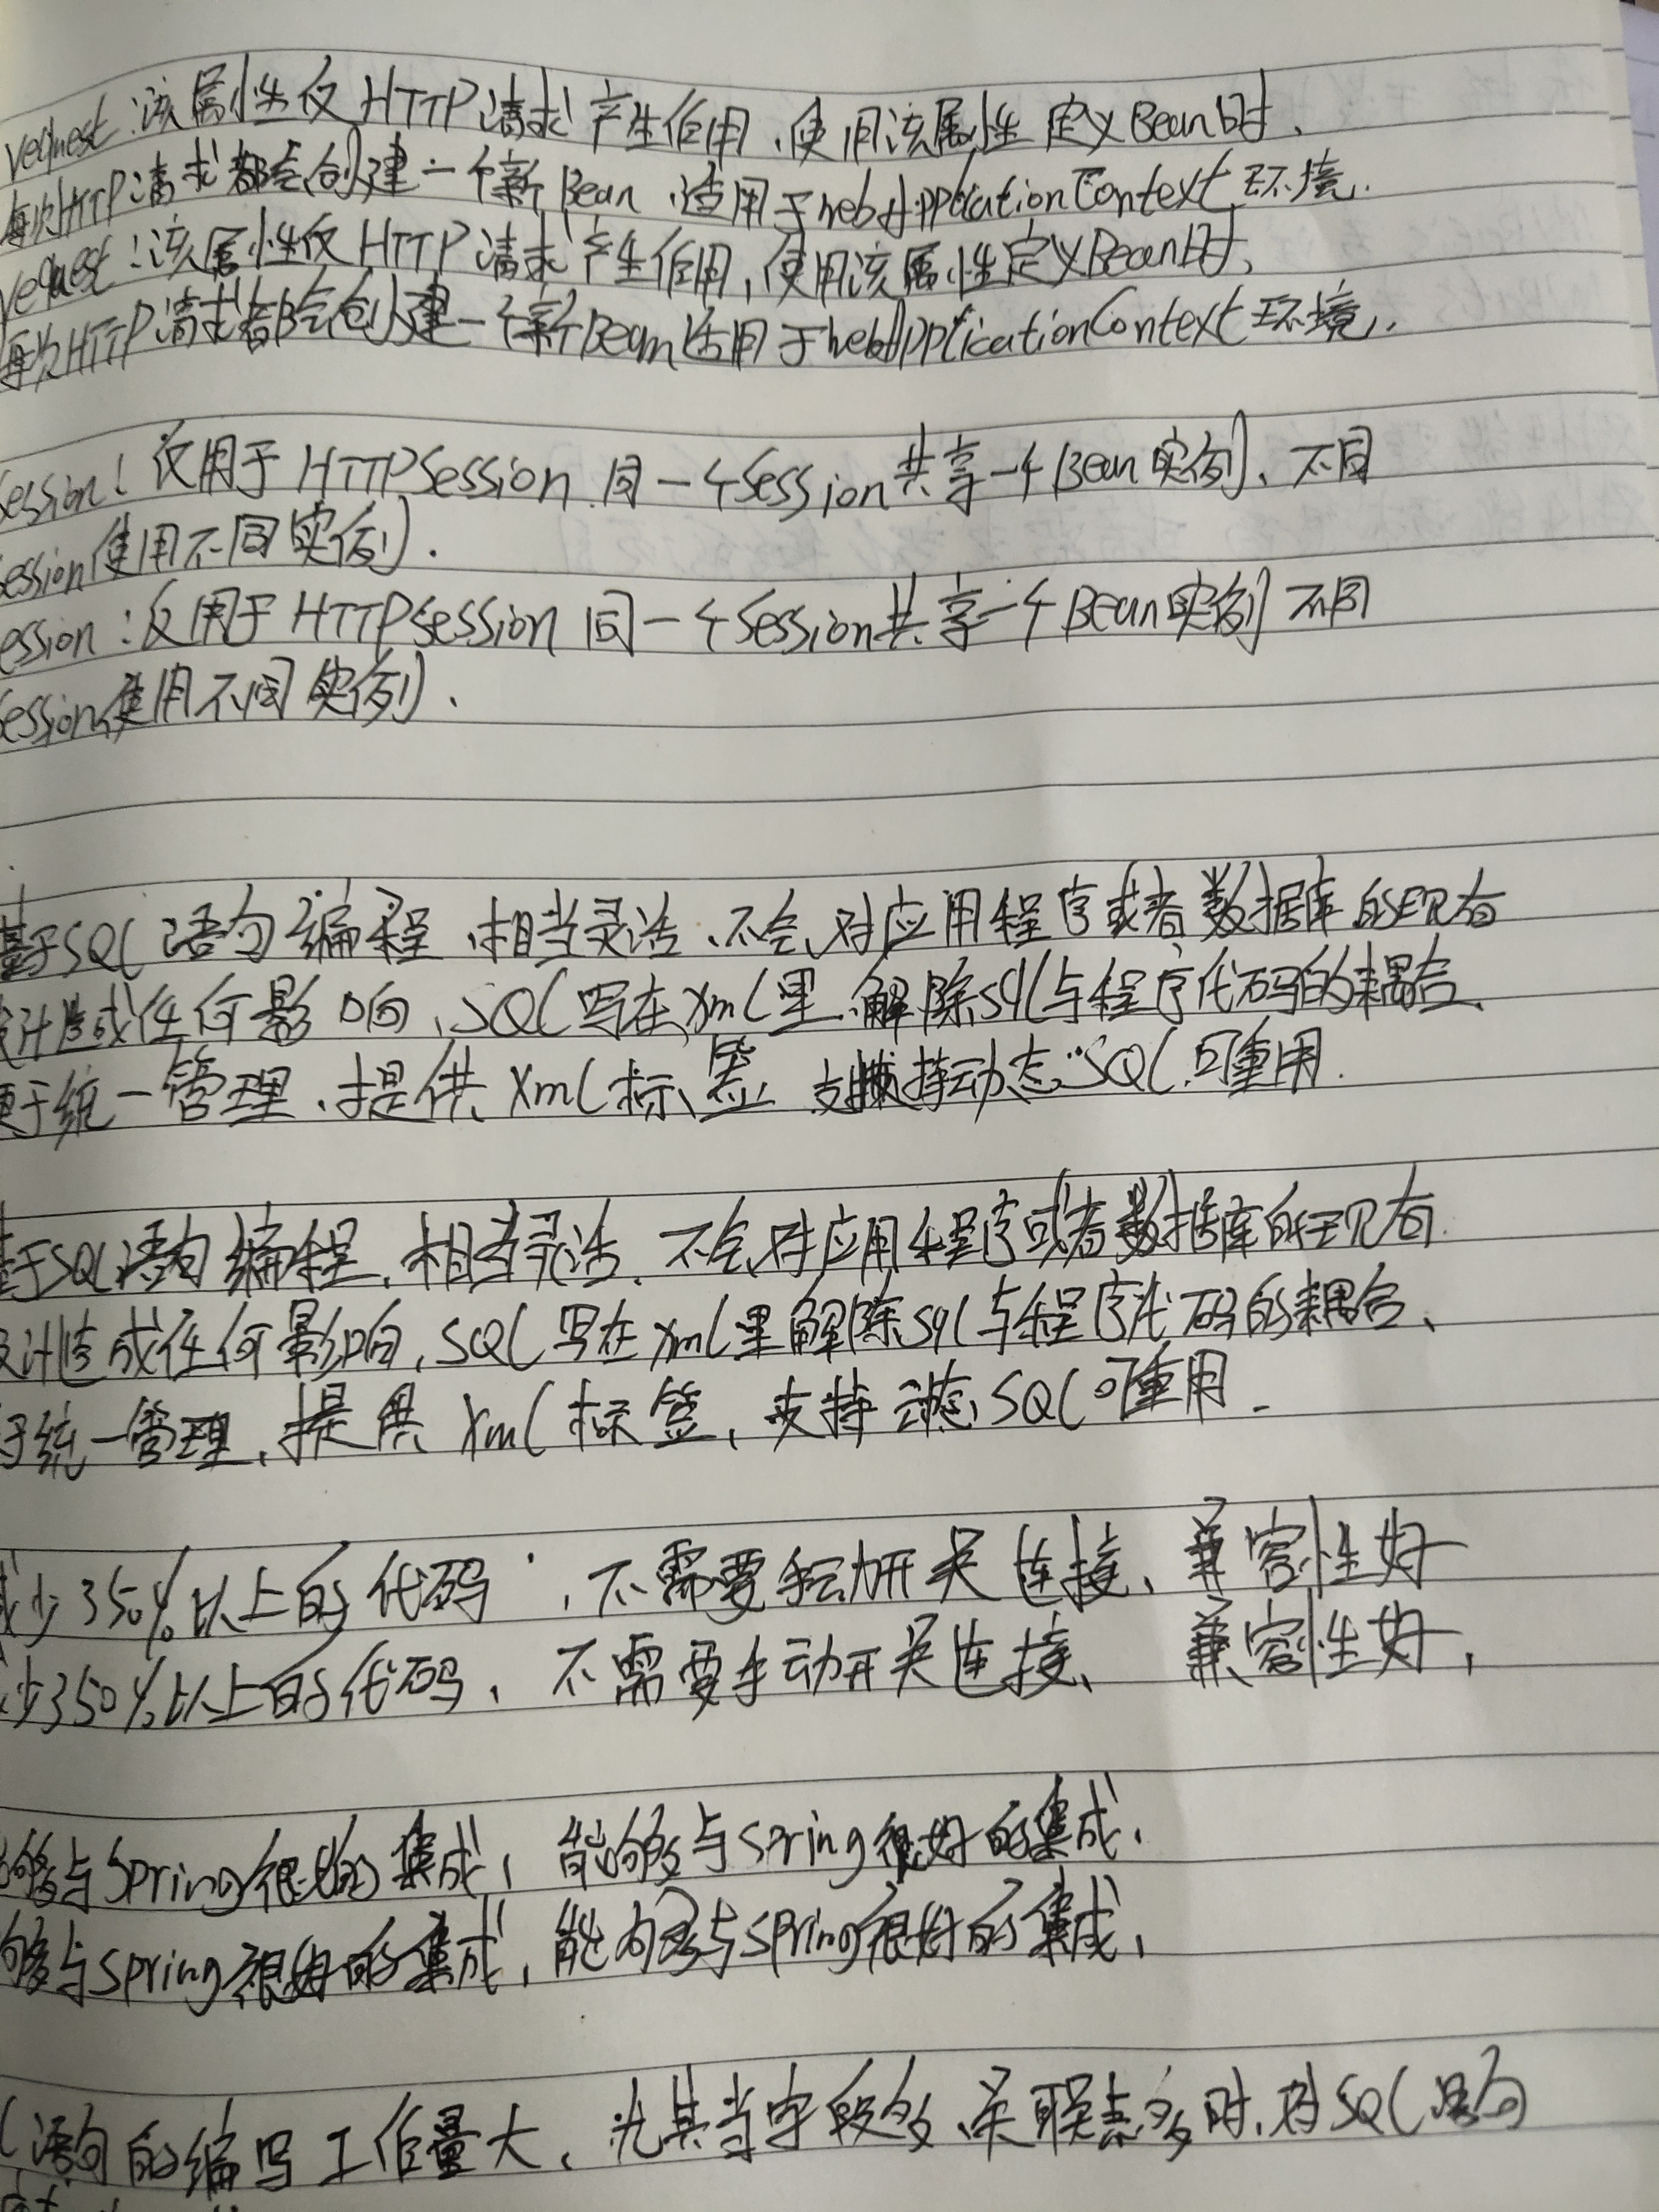 request:该属性仅HTTP请求产生作用,使用该属性定义Bean时,
每次HTTP请求都会创建一个新Bean,适用于webApplicationContext环境.
request:该属性仅HTTP请求产生作用,使用该属性定义Bean时,
每次HTTP请求都会创建一个新Bean适用于webApplicationContext环境.
Session:仅用于HTTPSession.同一个Session共享一个Bean实例、不同
ession使用不同实例.
ession:仅用于HTTPSession同一个Session共享一个Bean实例不同
Session使用不同实例、
基于SQL语句编程、相当灵活、不会对应用程序或者数据库的现有
设计造成任何影响、SQL写在xml里.解除sql与程序代码的耦合、
便于统一管理、提供Xml标签 支持动态SQL可重用.
基于SQL语句编程,相当灵活、不会对应用程序或者数据库的现有
设计造成任何影响,SQL写在xml里解除sql与程序代码的耦合、
于统一管理,提供Xml标签,支持动态SQL可重用.
减少350%以上的代码,不需要手动开关连接、兼容性好
少350%以上的代码,不需要手动开关连接、兼容性好,
够与Spring很好的集成,能够与Spring很好的集成,
够与Spring很好的集成,能够与Spring很好的集成,
语句的编写工作量大,尤其当字段多、关联表多时,对SQL语句